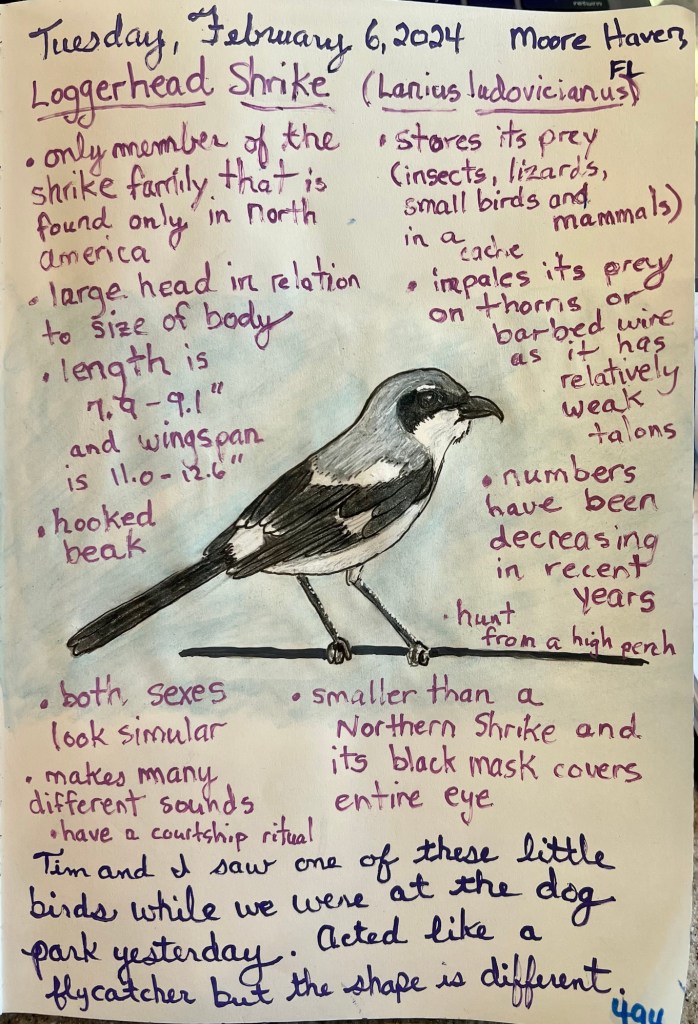 Tuesday, February 6, 2024 Moore Haven, FL
Loggerhead Shrike (Lanius ludovicianus)
• only member of the
shrike family that is
found only in north
america
• large head in relation
to size of body
• length is
7.9 - 9.1"
and wingspan
is 11.0 - 12.6"
• hooked
beak
• stores its prey
(insects, lizards,
small birds and mammals)
in a cache
• impales its prey
on thorns or
barbed wire
as it has
relatively
weak
talons
• numbers
have been
decreasing
in recent
years
• hunt
from a high perch
• both sexes
look simular
• makes many
different sounds
• have a courtship ritual
• smaller than a
Northern Shrike and
its black mask covers
entire eye
Tim and I saw one of these little
birds while we were at the dog
park yesterday. Acted like a
flycatcher but the shape is different.